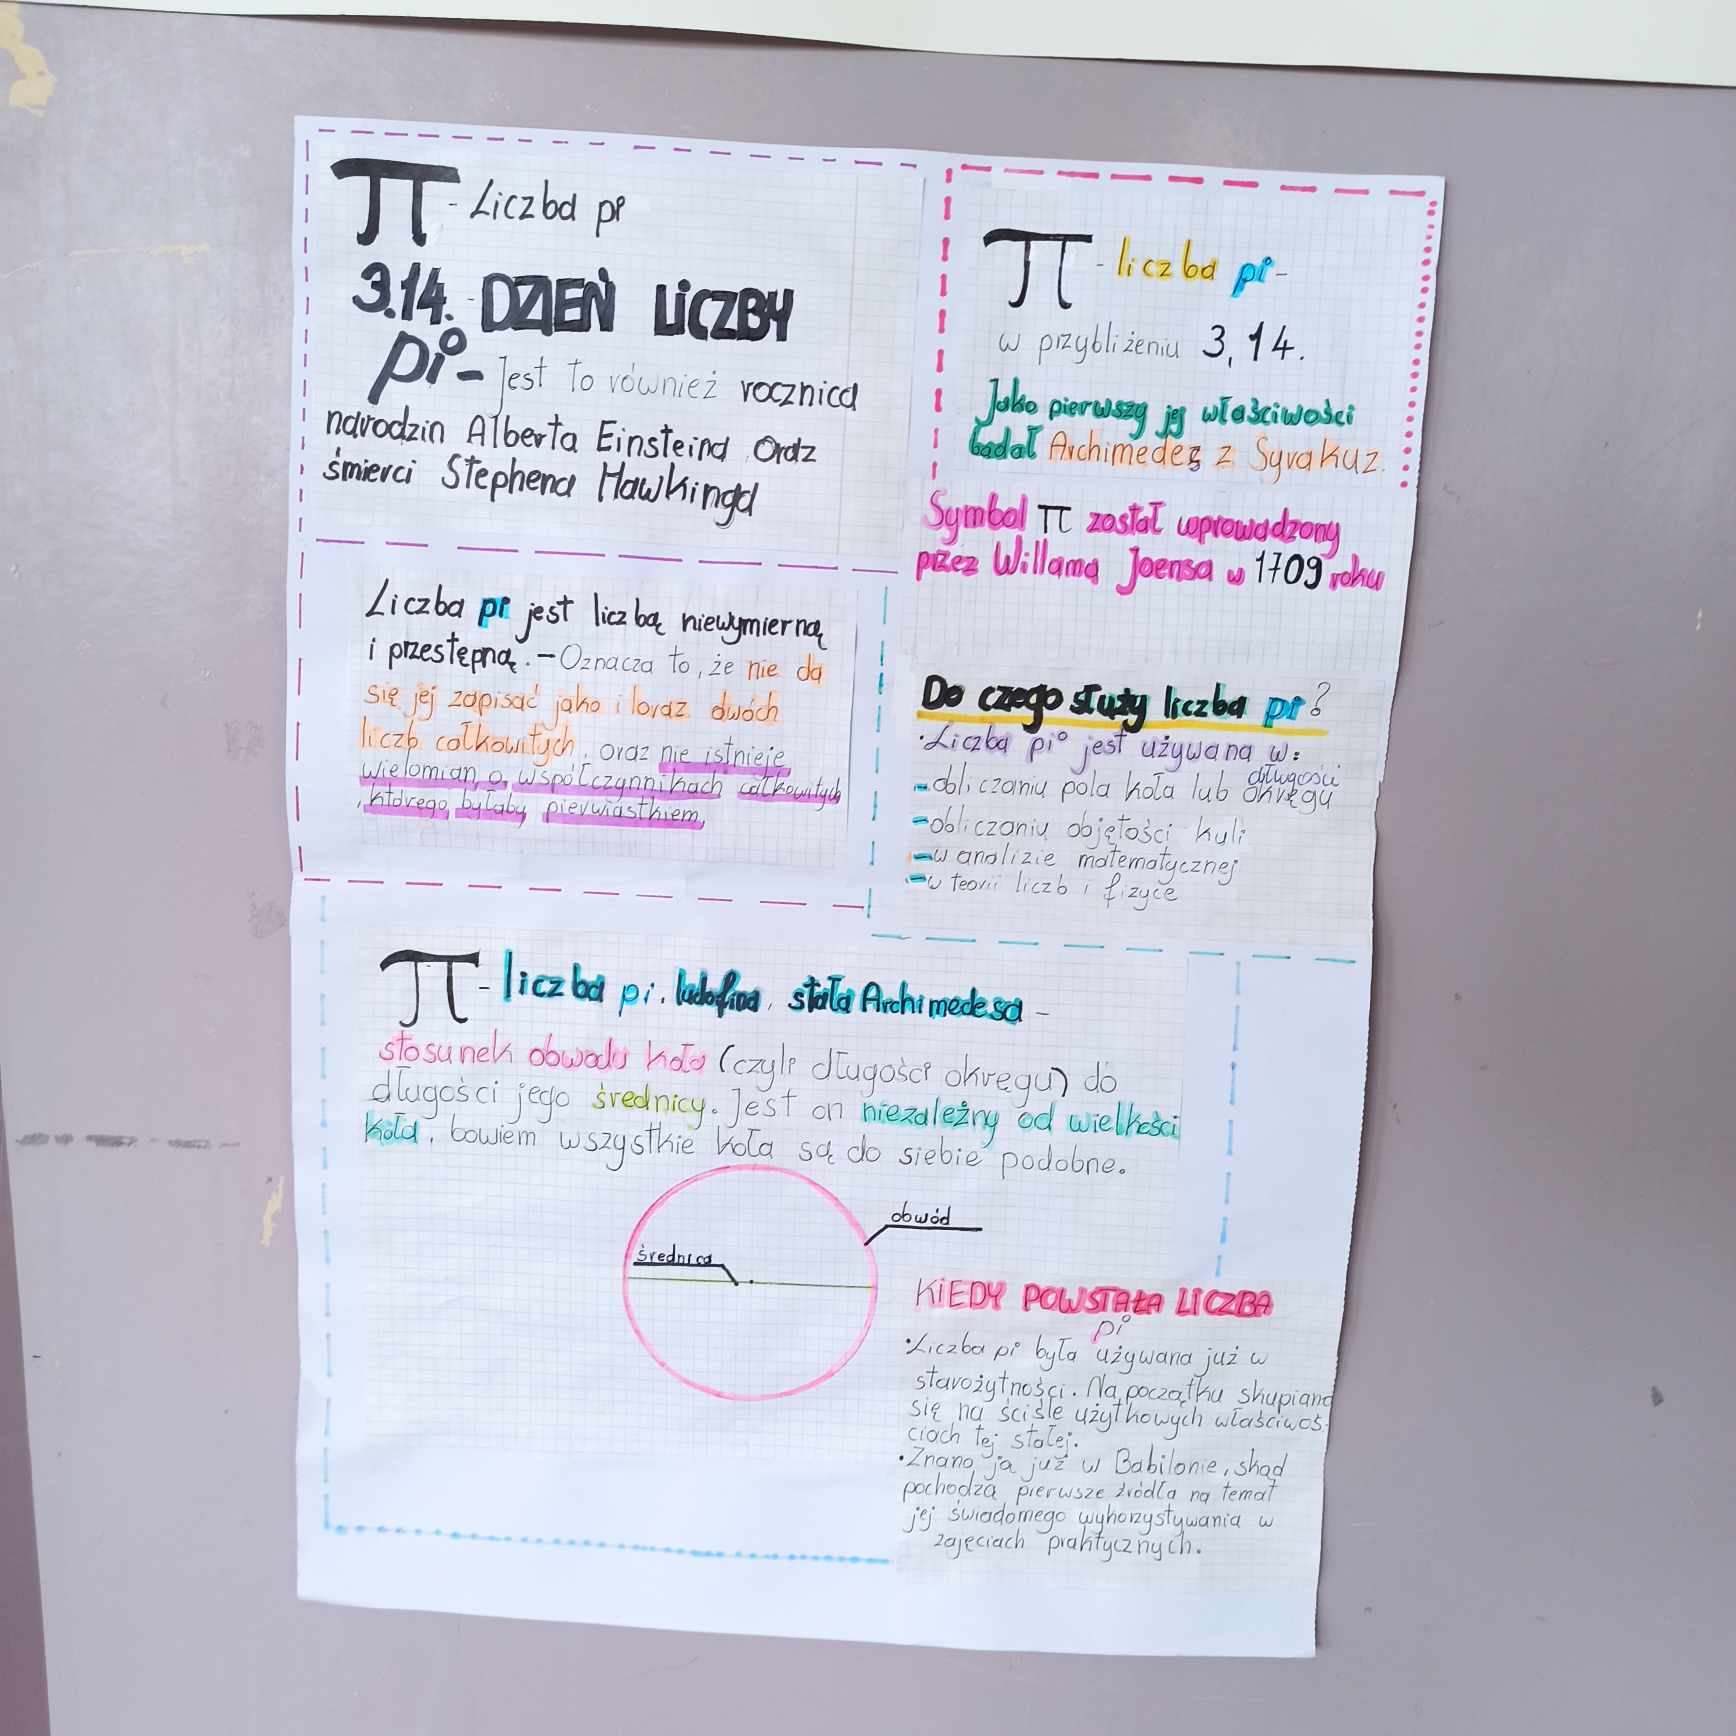 π - Liczba pi
3.14. - DZIEŃ LICZBY
pi - Jest to również rocznica
narodzin Alberta Einsteina oraz
śmierci Stephena Hawkinga
π - liczba pi -
w przybliżeniu 3,14.
Jako pierwszy jej właściwości
badał Archimedes z Syrakuz.
Symbol π został wprowadzony
przez Willama Joensa w 1709 roku
Liczba pi jest liczbą niewymierną
i przestępną. - Oznacza to, że nie da
się jej zapisać jako iloraz dwóch
liczb całkowitych, oraz nie istnieje
wielomian o współczynnikach całkowitych
, którego byłaby pierwiastkiem,
Do czego służy liczba pi?
• Liczba pi jest używana w:
- obliczaniu pola koła lub długości okręgu
- obliczaniu objętości kuli
- w analizie matematycznej
- w teorii liczb i fizyce
π - liczba pi, ludolfina, stała Archimedesa -
stosunek obwodu koła (czyli długości okręgu) do
długości jego średnicy. Jest on niezależny od wielkości
koła, bowiem wszystkie koła są do siebie podobne.
obwód
średnica
KIEDY POWSTAŁA LICZBA
pi
• Liczba pi była używana już w
starożytności. Na początku skupiano
się na ściśle użytkowych właściwoś-
ciach tej stałej.
• Znano ja już w Babilonie, skąd
pochodzą pierwsze źródła na temat
jej świadomego wykorzystywania w
zajęciach praktycznych.